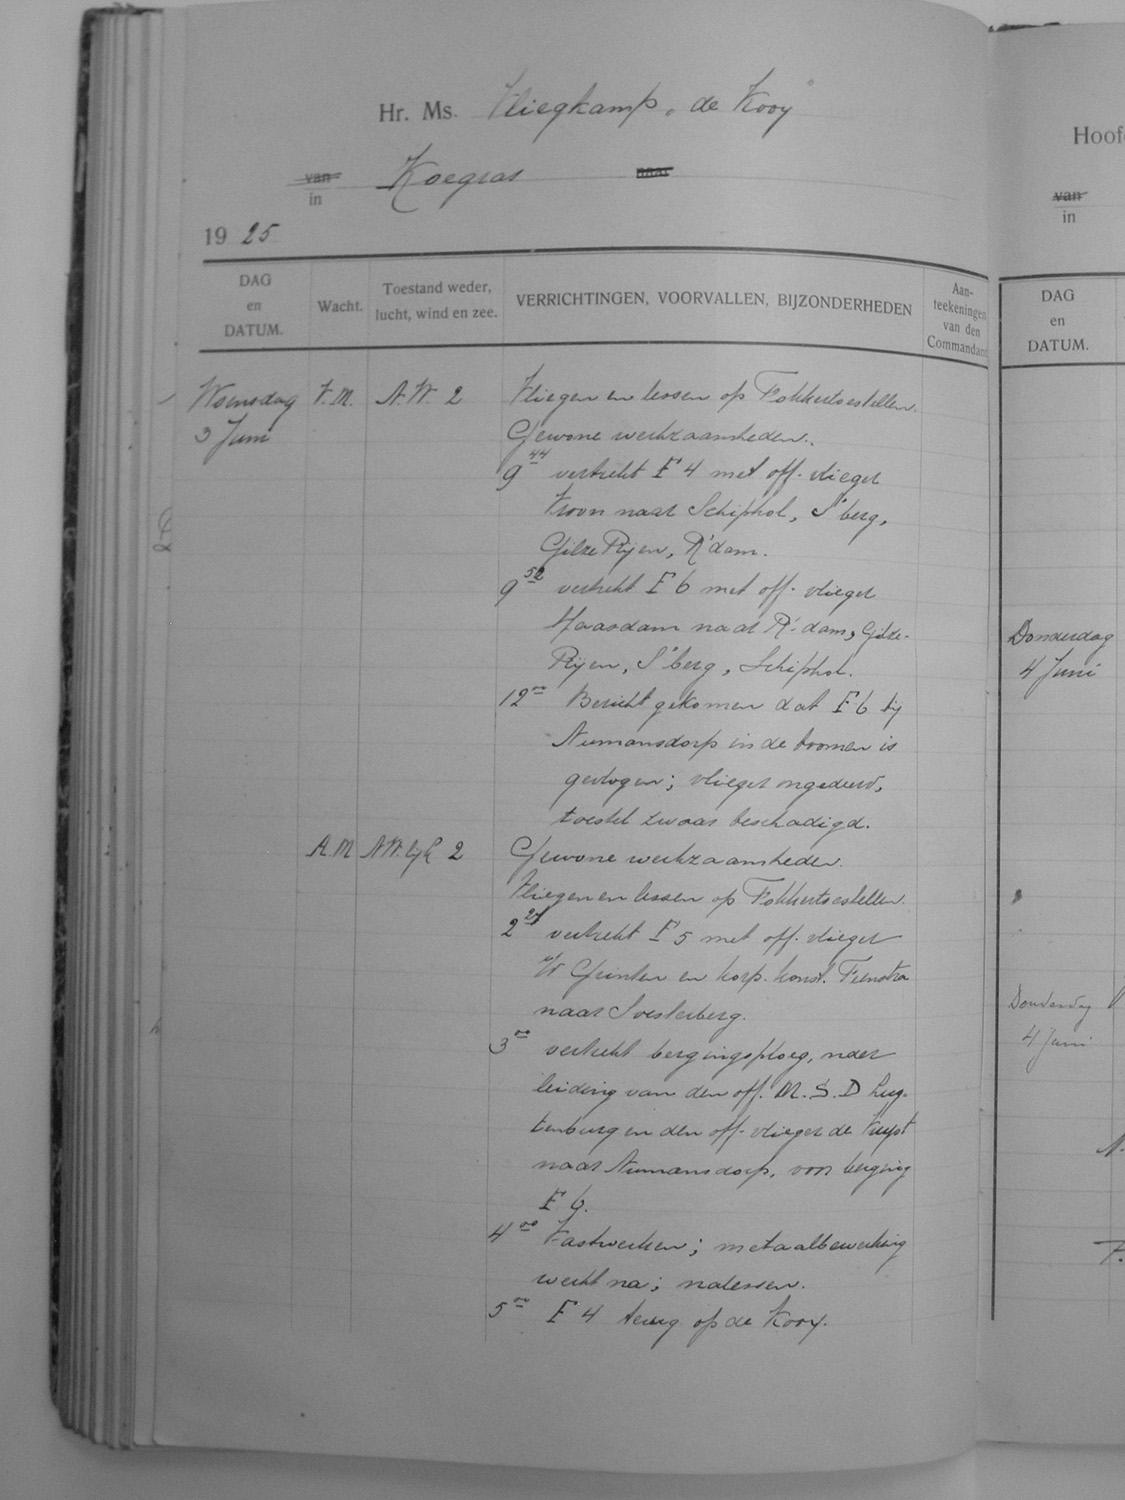 Hr. Ms. Vliegkamp „de Kooy"
van Koegras naar
in
1925
DAG en DATUM.
Wacht.
Toestand weder, lucht, wind en zee.
VERRICHTINGEN, VOORVALLEN, BIJZONDERHEDEN
Aan-
teekeningen
van den
Commandant
Woensdag V.M. N.W. 2 Vliegen en lessen op Fokkertoestellen.
3 Juni Gewone werkzaamheden.
9 44 vertrekt F 4 met off. vlieger
Kroon naar Schiphol, S'berg,
Gilze Rijen, R'dam.
9 52 vertrekt F 6 met off. vlieger
Haasdam naar R'dam, Gilze-
Rijen, S'berg, Schiphol.
12 00 Bericht gekomen dat F 6 bij
Numansdorp in de boomen is
gevlogen; vlieger ongedeerd,
toestel zwaar beschadigd.
A.M N.W. 2 Gewone werkzaamheden.
Vliegen en lessen op Fokkertoestellen.
2 27 vertrekt F 5 met off. vlieger
en korp. konst. Feenstra
naar Soesterberg.
3 00 vertrekt bergingsploeg, onder
leiding van den off. M.S.D Lug-
tenburg en den off. vlieger de
naar Numansdorp, voor berging
F 6.
4 00 Vastwerken; metaalbewerking
werkt na; nalessen.
5 00 F 4 terug op de Kooy.
Hoof
van
in
DAG
en
DATUM.
Donderdag
4 Juni
Donderdag
4 Juni